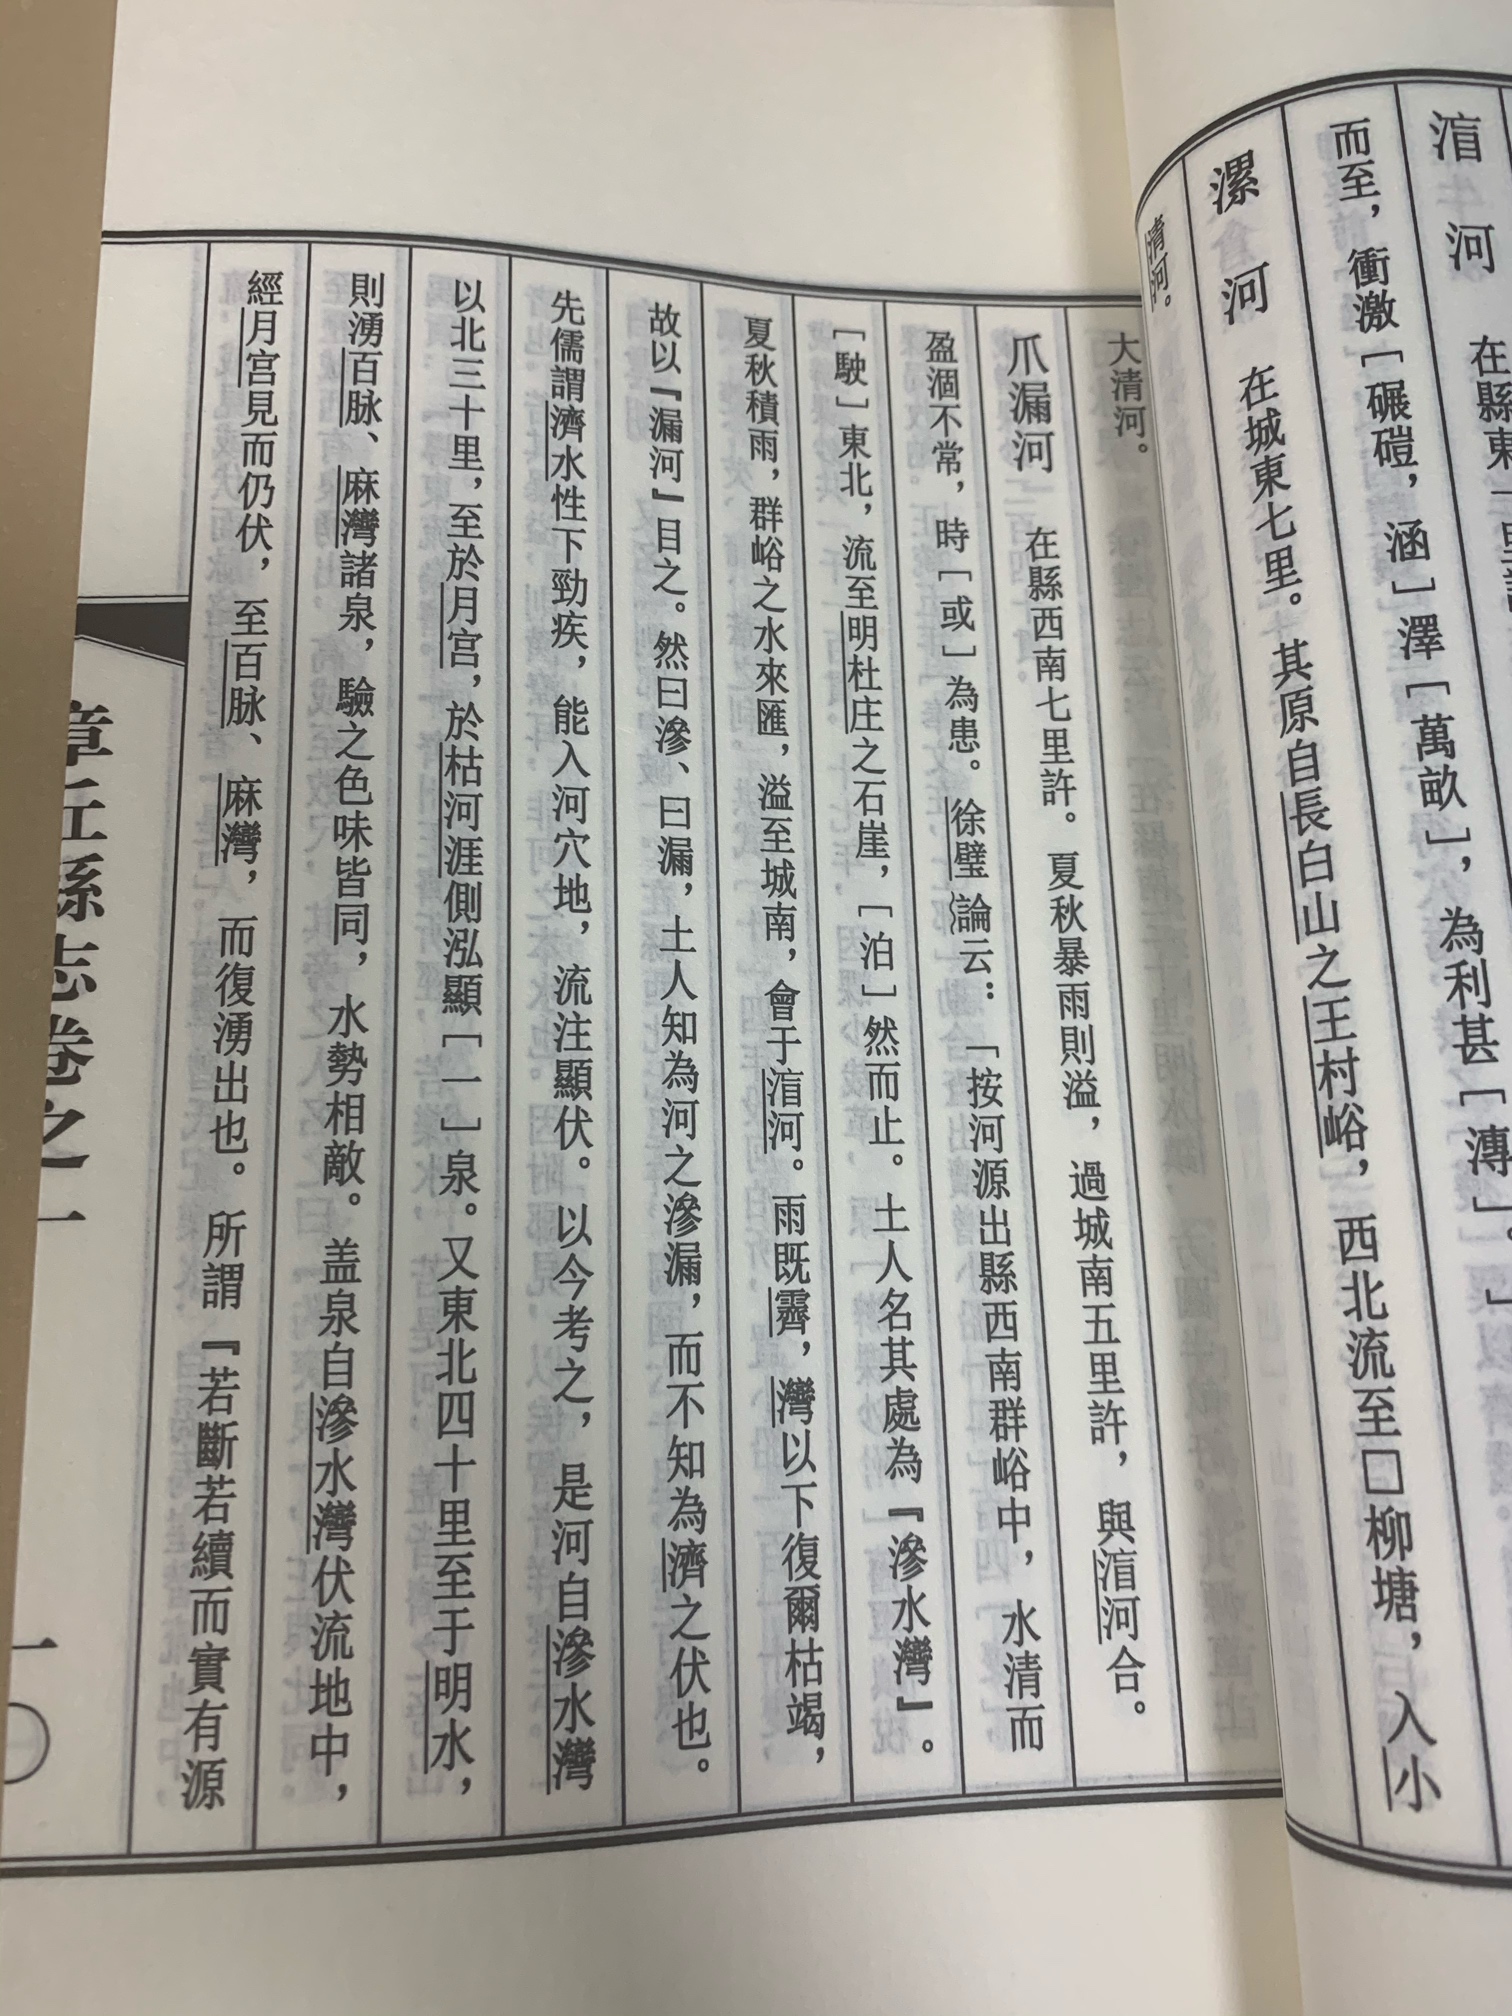 淯河　在縣東一里許
而至，衝激［碾磑，涵］澤［萬畝］，為利甚［溥］。」
漯河　在城東七里。其原自長白山之王村峪，西北流至□柳塘，入小
清河。
大清河。
爪漏河　在縣西南七里許。夏秋暴雨則溢，過城南五里許，與淯河合。
盈涸不常，時［或］為患。徐璧論云：「按河源出縣西南群峪中，水清而
［駛］東北，流至明杜庄之石崖，［泊］然而止。土人名其處為『滲水灣』。
夏秋積雨，群峪之水來匯，溢至城南，會于淯河。雨既霽，灣以下復爾枯竭，
故以『漏河』目之。然曰滲、曰漏，土人知為河之滲漏，而不知為濟之伏也。
先儒謂濟水性下勁疾，能入河穴地，流注顯伏。以今考之，是河自滲水灣
以北三十里，至於月宮，於枯河涯側泓顯［一］泉。又東北四十里至于明水，
則湧百脉、麻灣諸泉，驗之色味皆同，水勢相敵。盖泉自滲水灣伏流地中，
經月宮見而仍伏，至百脉、麻灣，而復湧出也。所謂『若斷若續而實有源
章丘縣志卷之一
一〇